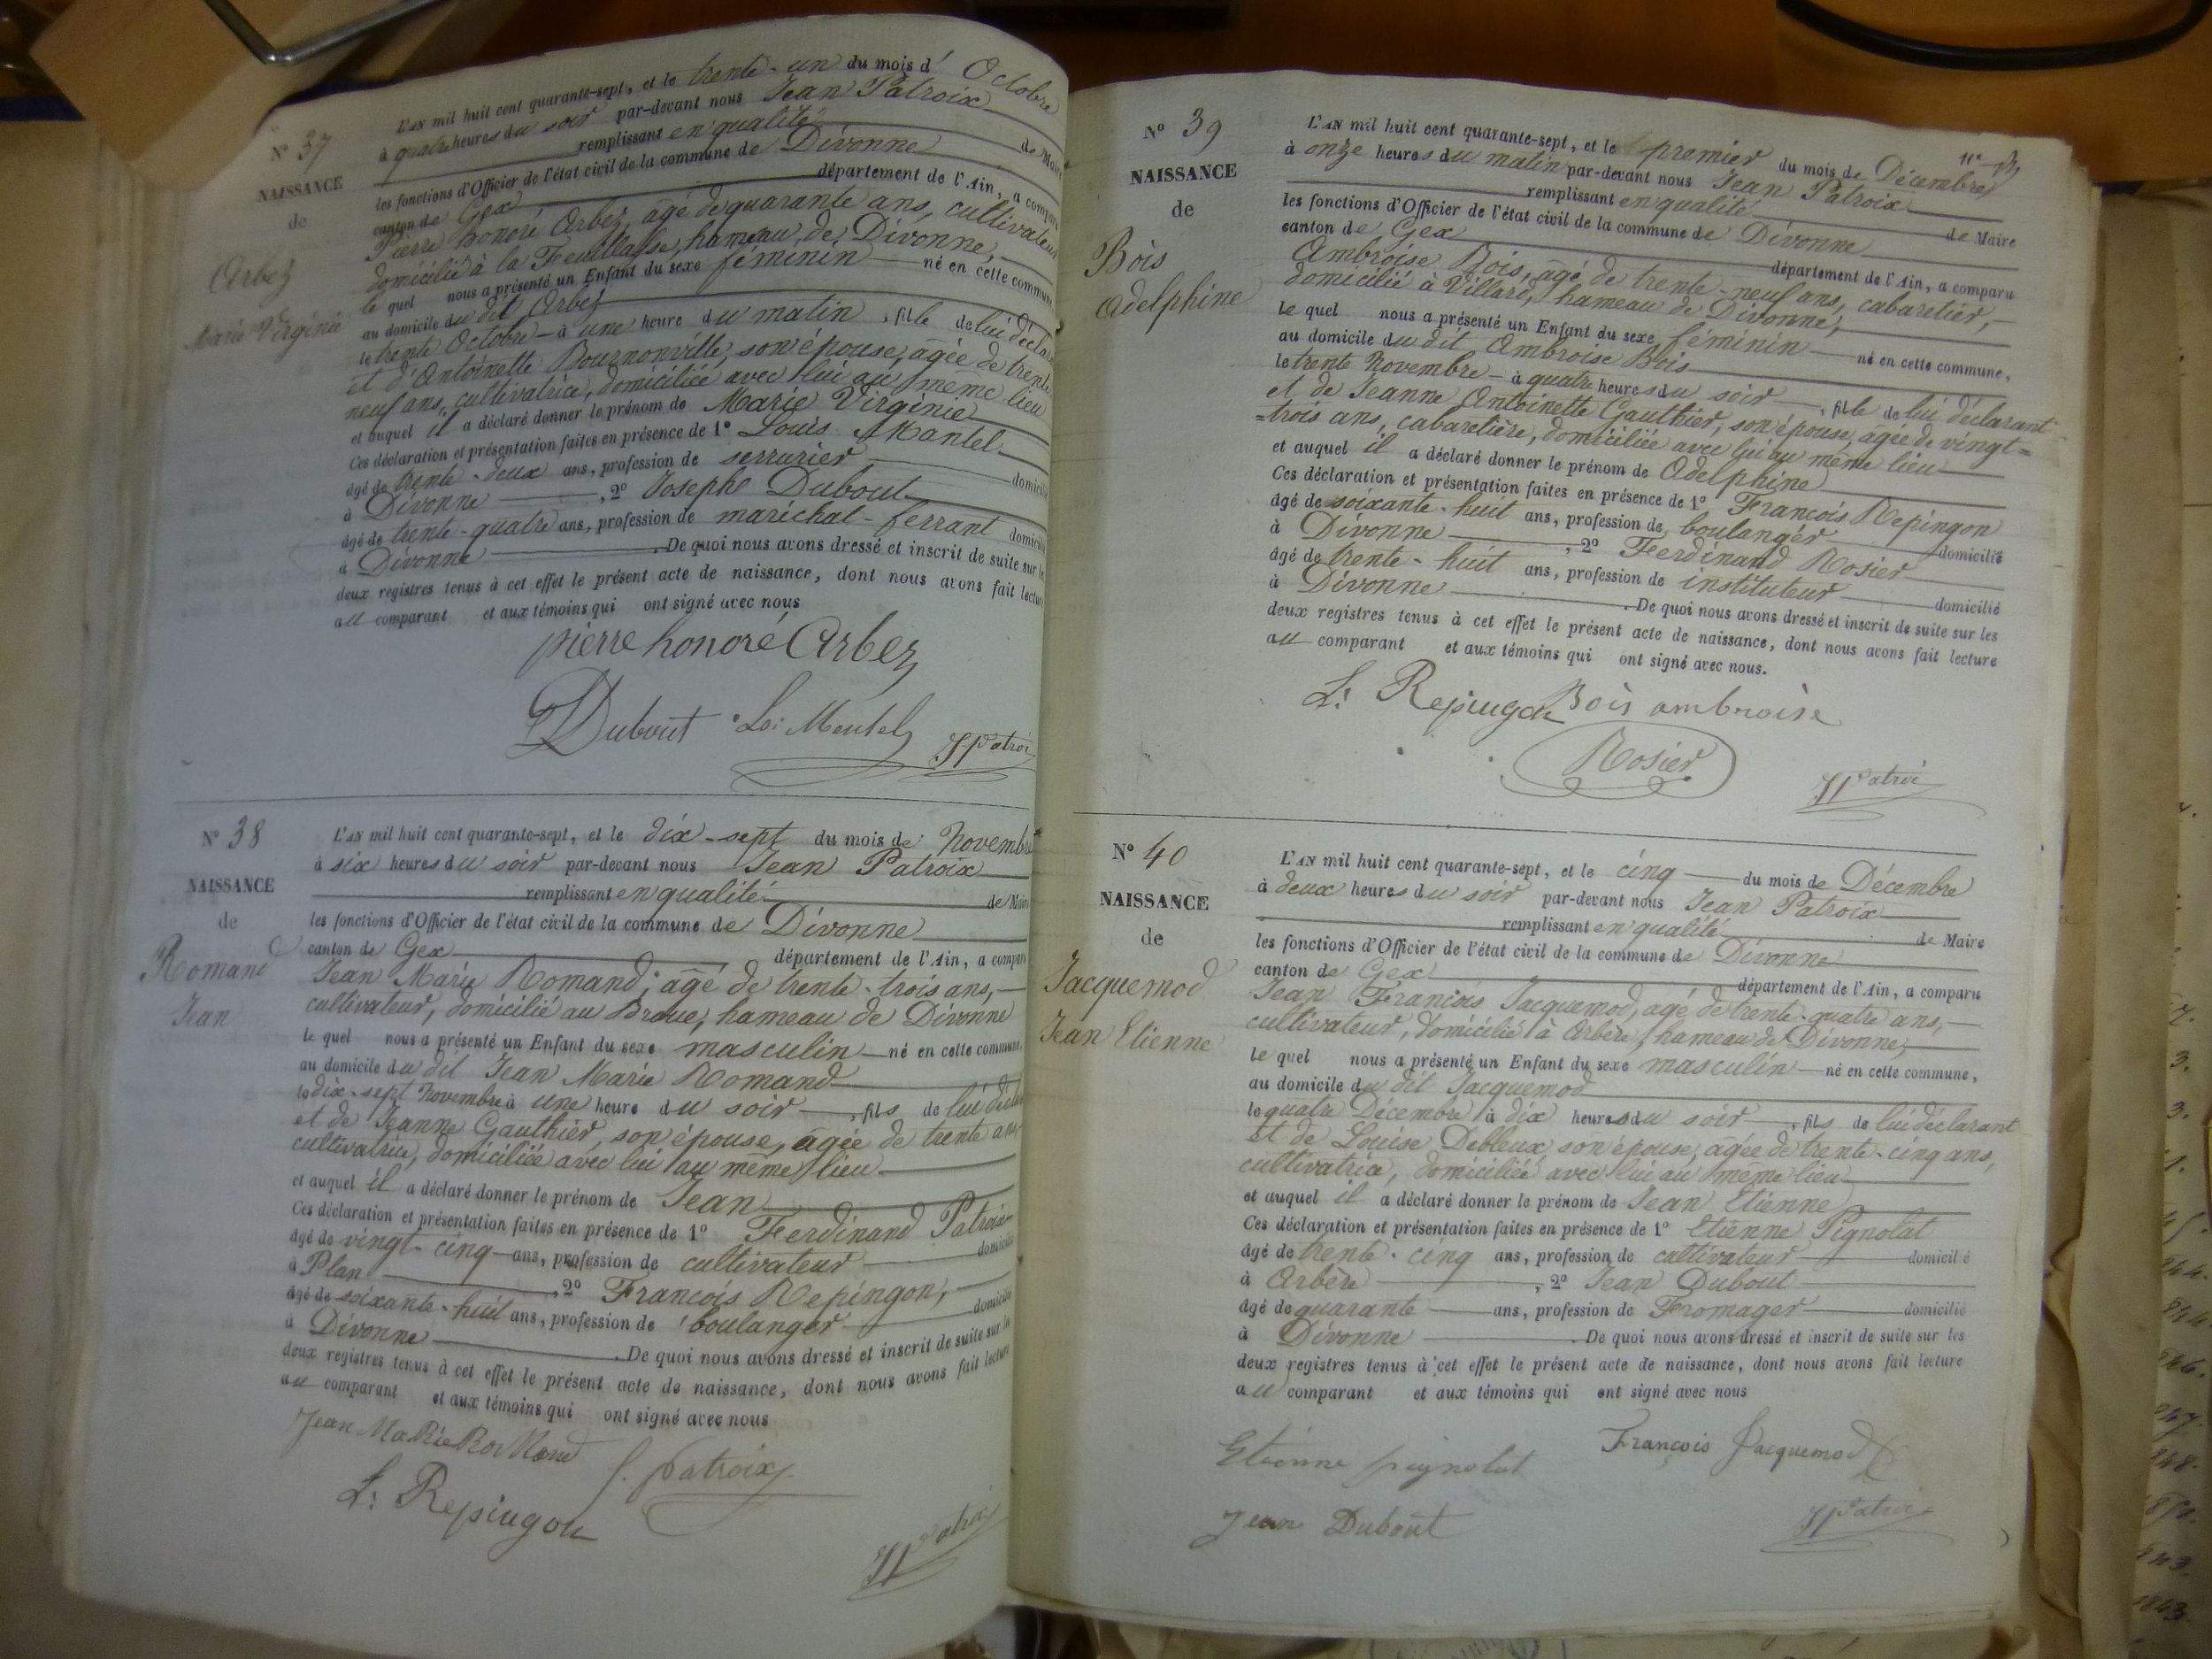 N° 37
NAISSANCE
de
Arbez
Marie Virginie
L'AN mil huit cent quarante-sept, et le trente-un du mois d' Octobre
à quatre heures du soir par-devant nous Jean Patroix
remplissant en qualité de Maire
les fonctions d'Officier de l'état civil de la commune de Divonne
canton de Gex département de l'Ain, a comparu
Pierre honoré Arbez, âgé de quarante ans, cultivateur
domicilié à la Feuillasse, hameau de Divonne,
le quel nous a présenté un Enfant du sexe féminin né en cette commune
au domicile du dit Arbez
le trente Octobre à une heure du matin, fille de lui déclarant
et d'Antoinette Bournonville, son épouse, âgée de trente
neuf ans, cultivatrice, domiciliée avec lui au même lieu
et auquel il a déclaré donner le prénom de Marie Virginie
Ces déclaration et présentation faites en présence de 1° Louis Mantel
âgé de trente-deux ans, profession de serrurier domicilié
à Divonne, 2° Joseph Dubout
âgé de trente-quatre ans, profession de maréchal-ferrant domicilié
à Divonne. De quoi nous avons dressé et inscrit de suite sur les
deux registres tenus à cet effet le présent acte de naissance, dont nous avons fait lecture
au comparant et aux témoins qui ont signé avec nous
pierre honoré Arbez
Dubout Ls: Mentel JPatroi
N° 38
NAISSANCE
de
Romand
Jean
L'AN mil huit cent quarante-sept, et le dix-sept du mois de Novembre
à six heures du soir par-devant nous Jean Patroix
remplissant en qualité de Maire
les fonctions d'Officier de l'état civil de la commune de Divonne
canton de Gex département de l'Ain, a comparu
Jean Marie Romand, âgé de trente-trois ans,
cultivateur, domicilié au Broue, hameau de Divonne
le quel nous a présenté un Enfant du sexe masculin né en cette commune,
au domicile du dit Jean Marie Romand
le dix-sept Novembre à une heure du soir, fils de lui décla
et de Jeanne Gauthier, son épouse, âgée de trente ans,
cultivatrice, domiciliée avec lui au même lieu
et auquel il a déclaré donner le prénom de Jean
Ces déclaration et présentation faites en présence de 1° Ferdinand Patroix
âgé de vingt-cinq ans, profession de cultivateur domicilié
à Plan, 2° François Repingon,
âgé de soixante-huit ans, profession de boulanger domicilié
à Divonne. De quoi nous avons dressé et inscrit de suite sur les
deux registres tenus à cet effet le présent acte de naissance, dont nous avons fait lecture
au comparant et aux témoins qui ont signé avec nous
Jean MaRie RoMand f. patroix
L: Repingon
JPatroi
N° 39
NAISSANCE
de
Bois
Adelphine
11e
L'AN mil huit cent quarante-sept, et le premier du mois de Décembre
à onze heures du matin par-devant nous Jean Patroix
remplissant en qualité de Maire
les fonctions d'Officier de l'état civil de la commune de Divonne
canton de Gex département de l'Ain, a comparu
Ambroise Bois, âgé de trente-neuf ans, cabaretier,
domicilié à Villard, hameau de Divonne,
le quel nous a présenté un Enfant du sexe féminin né en cette commune,
au domicile du dit Ambroise Bois
le trente Novembre à quatre heures du soir, fille de lui déclarant
et de Jeanne Antoinette Gauthier, son épouse, âgée de vingt=
=trois ans, cabaretière, domiciliée avec lui au même lieu
et auquel il a déclaré donner le prénom de Adelphine
Ces déclaration et présentation faites en présence de 1° François Repingon
âgé de soixante-huit ans, profession de boulanger domicilié
à Divonne, 2° Ferdinand Rosier
âgé de trente-huit ans, profession de instituteur domicilié
à Divonne. De quoi nous avons dressé et inscrit de suite sur les
deux registres tenus à cet effet le présent acte de naissance, dont nous avons fait lecture
au comparant et aux témoins qui ont signé avec nous.
L: Repingon Bois ambroise
Rosier
JPatroi
N° 40
NAISSANCE
de
Jacquemod
Jean Etienne
L'AN mil huit cent quarante-sept, et le cinq du mois de Décembre
à deux heures du soir par-devant nous Jean Patroix
remplissant en qualité de Maire
les fonctions d'Officier de l'état civil de la commune de Divonne
canton de Gex département de l'Ain, a comparu
Jean François Jacquemod, âgé de trente-quatre ans,
cultivateur, domicilié à Arbère, hameau de Divonne,
le quel nous a présenté un Enfant du sexe masculin né en cette commune,
au domicile du dit Jacquemod
le quatre Décembre à dix heures du soir, fils de lui déclarant
et de Louise Debleux, son épouse, âgée de trente-cinq ans,
cultivatrice, domiciliée avec lui au même lieu
et auquel il a déclaré donner le prénom de Jean Etienne
Ces déclaration et présentation faites en présence de 1° Etienne Pignolat
âgé de trente-cinq ans, profession de cultivateur domicilié
à Arbère, 2° Jean Dubout
âgé de quarante ans, profession de Fromager domicilié
à Divonne. De quoi nous avons dressé et inscrit de suite sur les
deux registres tenus à cet effet le présent acte de naissance, dont nous avons fait lecture
au comparant et aux témoins qui ont signé avec nous
Etienne pignolat François Jacquemod
Jean Dubout JPatroi